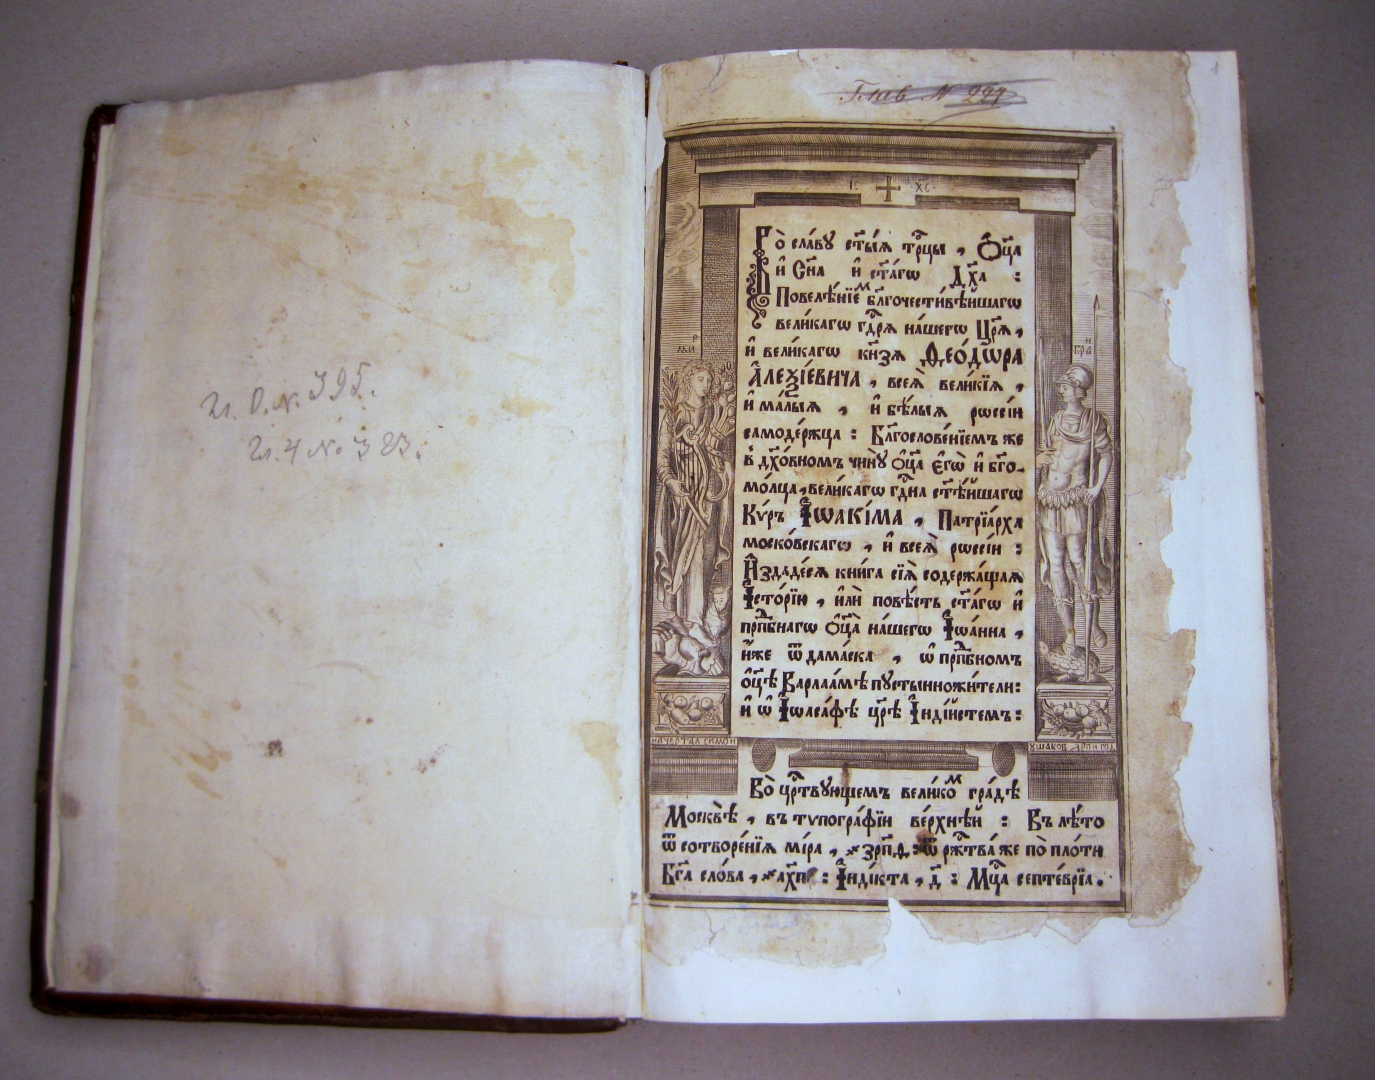 Гл. О. №. 395.
Гл. Ч № 323.
Глав № 227
І҃С ХС҃
МИРЪ
БРАНЬ
Во̀ сла́ву ст҃ы́ѧ трⷪ҇цы , Ѻ҆ц҃а̀
и҆ Сн҃а и҆ ст҃а́гѡ Дх҃а :
Повелѣ́нїеⷨ бл҃гочести́вѣйшагѡ
вели́кагѡ гдⷭ҇рѧ на́шегѡ Цр҃ѧ̀ ,
и҆ вели́кагѡ кн҃зѧ Ѳео́дѡра
А҆леѯі́евича , всеѧ̀ вели́кїѧ ,
и҆ ма́лыѧ , и҆ бѣ́лыѧ рѡссі́и
самоде́ржца : Бл҃гослове́нїемъ же
в̾ дх҃о́вномъ чи́ну ѻ҆ц҃а̀ є҆гѡ̀ и҆ бг҃о-
мо́лца , вели́кагѡ гдⷭ҇на ст҃ѣ́йшагѡ
Кѵ́ръ І҆ѡаки́ма , Патрїа́рха
моско́вскагѡ , и҆ всеѧ̀ рѡссі́и :
И҆здаде́сѧ кни́га сїѧ̀ содержа́щаѧ
І҆сто́рїю , и҆лѝ по́вѣсть ст҃а́гѡ и҆
прпⷣбнагѡ ѻ҆ц҃а̀ на́шегѡ І҆ѡа́нна ,
и҆́же ѿ дама́ска , ѡ҆ прпⷣбномъ
ѻ҆ц҃ѣ̀ Варлаа́мѣ пꙋстынножи́тели :
и҆ ѡ҆ І҆ѡаса́фѣ цр҃ѣ̀ І҆нді́йстемъ :
НАЧЕРТАЛ СИМОН УШАКОВ ЗРПИ ѠТ
Во̀ црⷭ҇твующемъ вели́коⷨ гра́дѣ
Москвѣ̀ , въ тѵпогра́фїи ве́рхнѣй : Въ лѣ́то
ѿ сотворе́нїѧ мі́ра , ҂зр҃пѳ : ѿ ржⷭ҇тва́ же по̀ пло́ти
Бг҃а сло́ва , ҂ах҃п : І҆нді́кта , д҃ : Мцⷭ҇а септе́врїа .